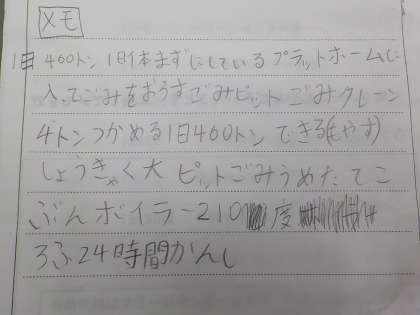 メモ
1日 460トン 1日1本まずにしている プラットホームに
入ってごみをおろす ごみピット ごみクレーン
4トンつかめる 1日460トン できる(もやす)
しょうきゃく大 ピットごみうめたてこ
ぶん ボイラー 210 度
ろふ 24時間かんし